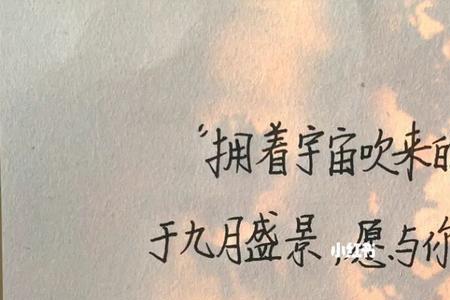 “拥着宇宙吹来的
于九月盛景,愿与你
小红书